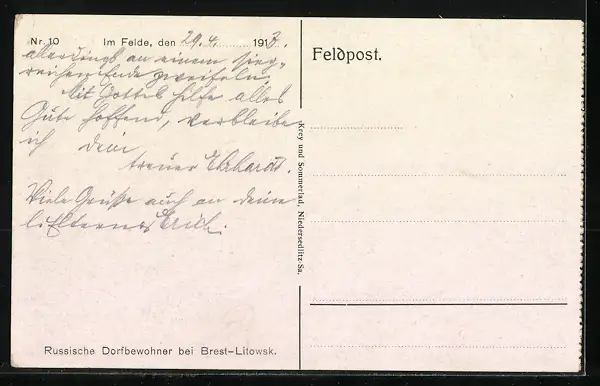 Nr. 10 Im Felde, den 29.4. 1917.
allerdings an einem sieg-
reichen Ende zweifeln.
Mit Gottes Hilfe alles
Gute hoffend, verbleibe
ich Dein
treuer Ehrhardt.
Viele Grüße auch an Deine
l. Eltern u. Erich.
Feldpost.
Krey und Sommerlad, Niedersedlitz-Sa.
Russische Dorfbewohner bei Brest-Litowsk.